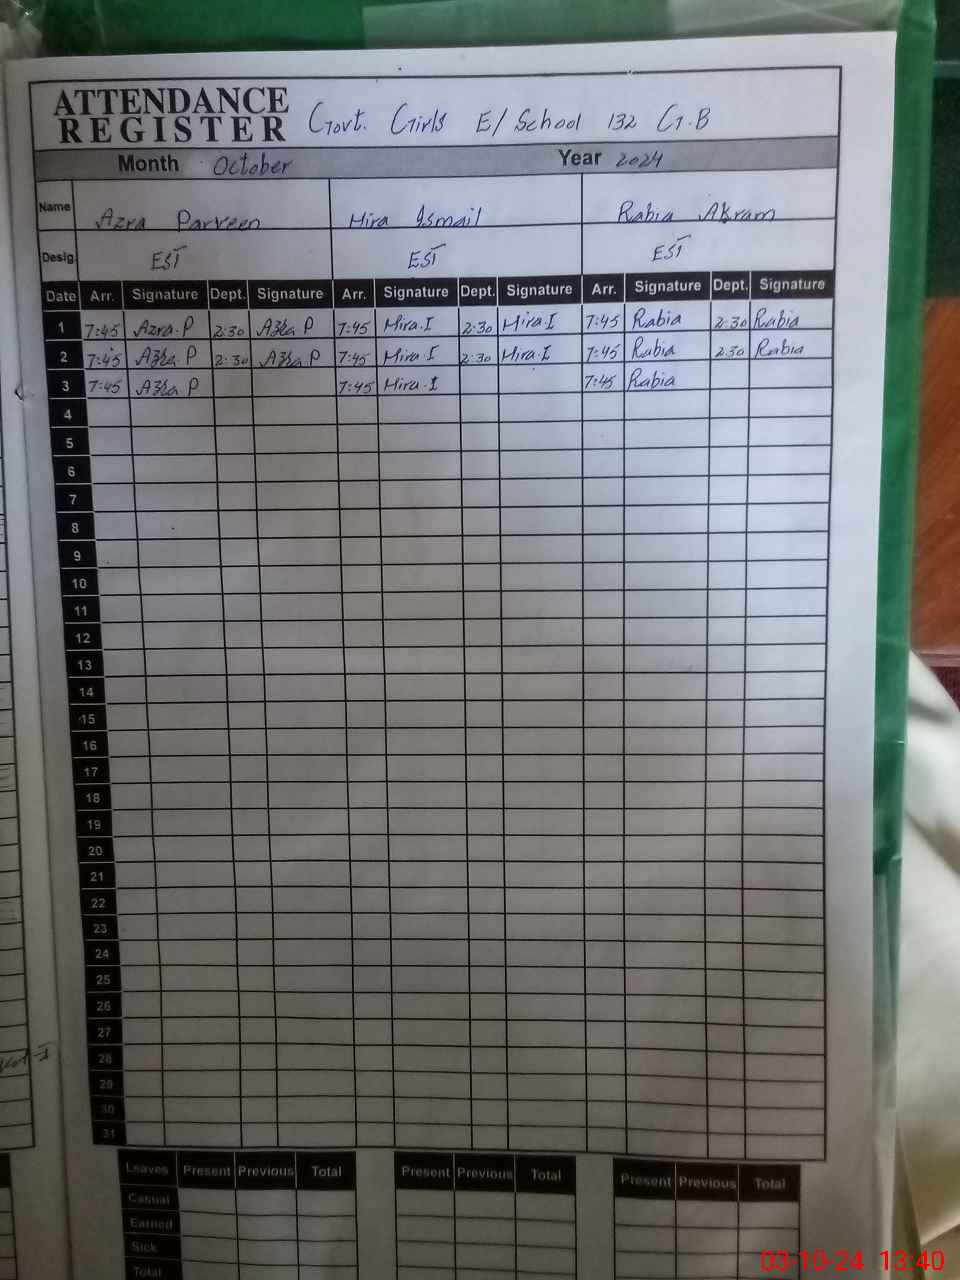 ATTENDANCE
REGISTER
Govt. Girls E/School 132 G.B
Month October Year 2024
Name Azra Parveen Hira Ismail Rabia Akram
Desig. EST EST EST
Date Arr. Signature Dept. Signature Arr. Signature Dept. Signature Arr. Signature Dept. Signature
1 7:45 Azra.P 2:30 Azra P 7:45 Hira.I 2:30 Hira.I 7:45 Rabia 2:30 Rabia
2 7:45 Azra P 2:30 Azra P 7:45 Hira.I 2:30 Hira.I 7:45 Rabia 2:30 Rabia
3 7:45 Azra P 7:45 Hira.I 7:45 Rabia
4
5
6
7
8
9
10
11
12
13
14
15
16
17
18
19
20
21
22
23
24
25
26
27
28
29
30
31
Leaves Present Previous Total Present Previous Total Present Previous Total
Casual
Earned
Sick
Total
03-10-24 13:40